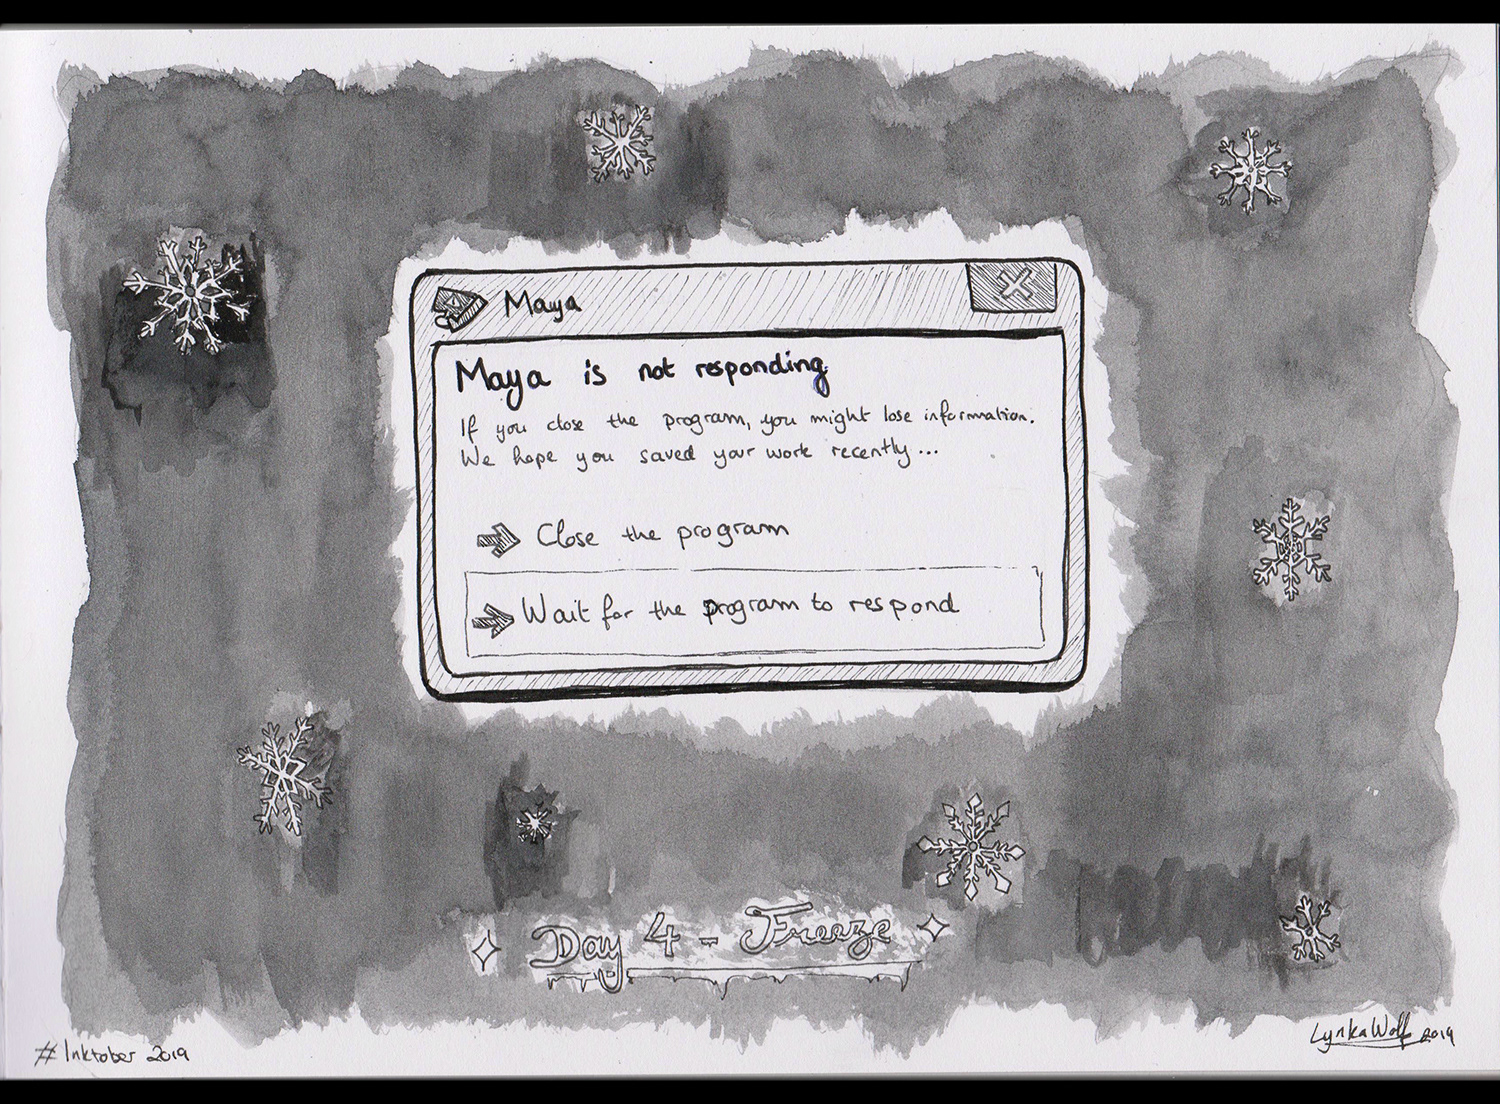 Maya
Maya is not responding
If you close the program, you might lose information.
We hope you saved your work recently...
Close the program
Wait for the program to respond
Day 4 - Freeze
#Inktober 2019
LynkaWolf 2019